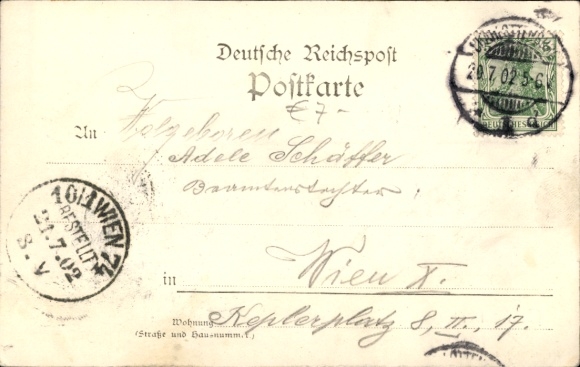 Deutsche Reichspost
Postkarte
€ 7-
An Wolgeboren
Adele Schäffer
Beamtenstochter
in Wien X.
Wohnung Keplerplatz 8, II, 17.
(Straße und Hausnumm.)
20.7.02 5-6
10/1 WIEN 74
BESTELLT
21.7.02
8.V